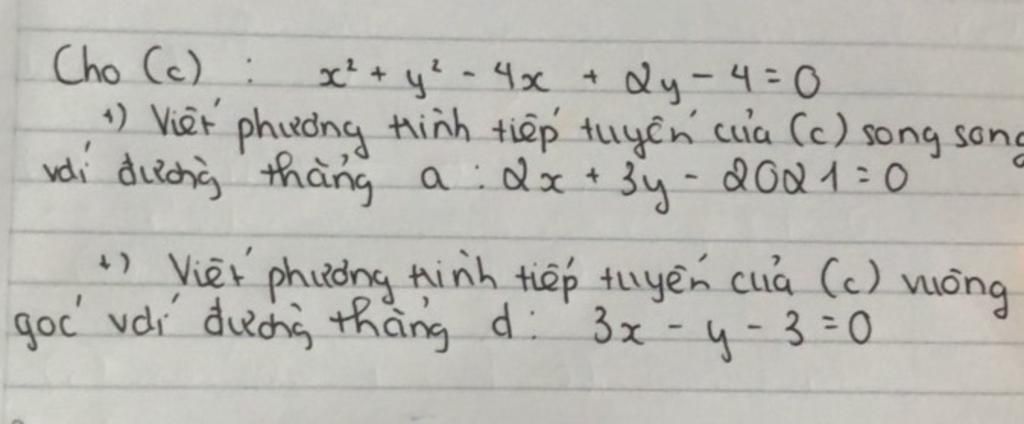 Cho (c) : x² + y² - 4x + 2y - 4 = 0
+) Viết phương trình tiếp tuyến của (c) song song
với đường thẳng a : 2x + 3y - 2021 = 0
+) Viết phương trình tiếp tuyến của (c) vuông
góc với đường thẳng d : 3x - y - 3 = 0